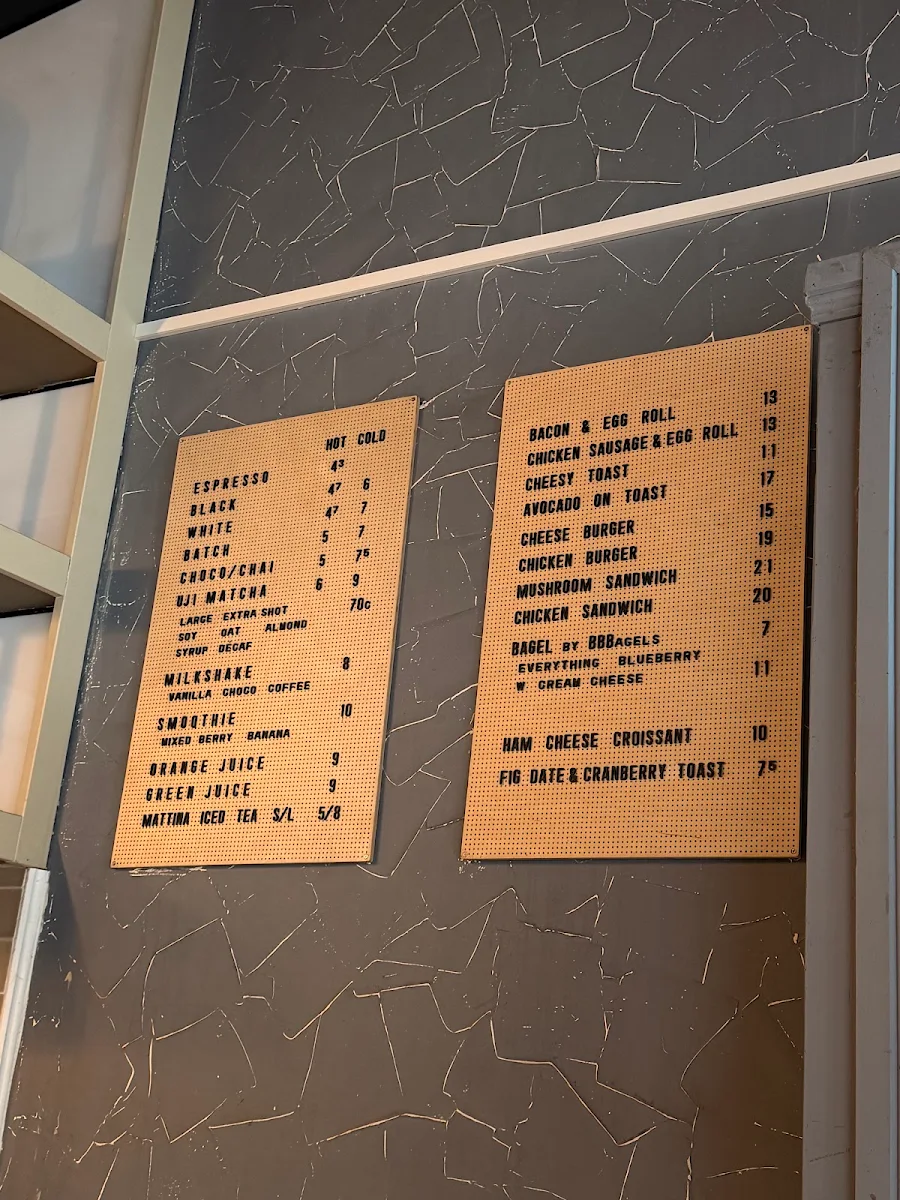 HOT COLD
ESPRESSO 4³
BLACK 4⁷ 6
WHITE 4⁷ 7
BATCH 5 7
CHOCO/CHAI 5 7⁵
UJI MATCHA 6 9
LARGE EXTRA SHOT 70c
SOY OAT ALMOND
SYRUP DECAF
MILKSHAKE 8
VANILLA CHOCO COFFEE
SMOOTHIE 10
MIXED BERRY BANANA
ORANGE JUICE 9
GREEN JUICE 9
MATTINA ICED TEA S/L 5/8
BACON & EGG ROLL 13
CHICKEN SAUSAGE & EGG ROLL 13
CHEESY TOAST 11
AVOCADO ON TOAST 17
CHEESE BURGER 15
CHICKEN BURGER 19
MUSHROOM SANDWICH 21
CHICKEN SANDWICH 20
BAGEL BY BBBAGELS 7
EVERYTHING BLUEBERRY
W CREAM CHEESE 11
HAM CHEESE CROISSANT 10
FIG DATE & CRANBERRY TOAST 7⁵